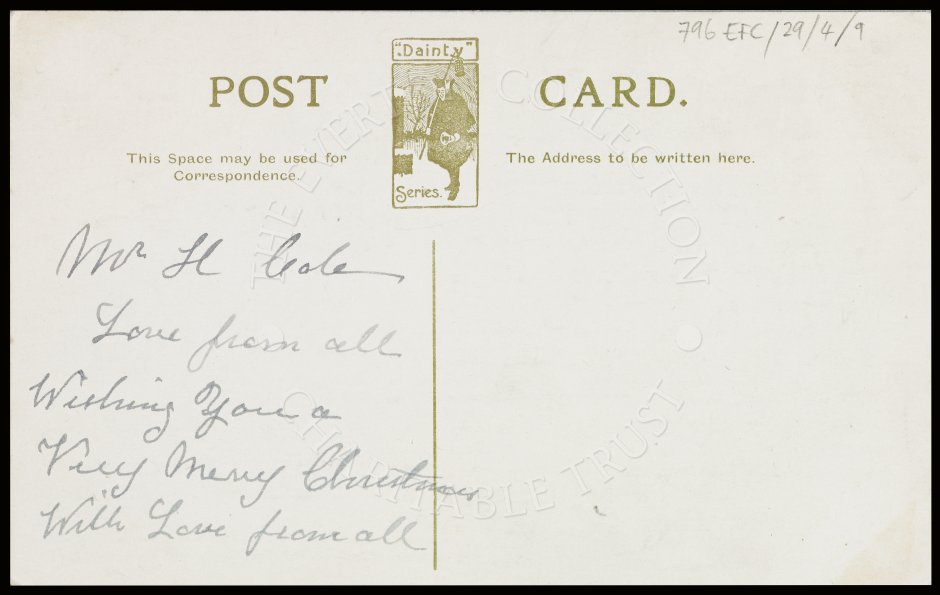 796 EFC/29/4/9
"Dainty"
Series.
POST CARD.
This Space may be used for
Correspondence.
The Address to be written here.
Mr H Cole
Love from all
Wishing You a
Very Merry Christmas
With Love from all
THE EVERTON COLLECTION
CHARITABLE TRUST